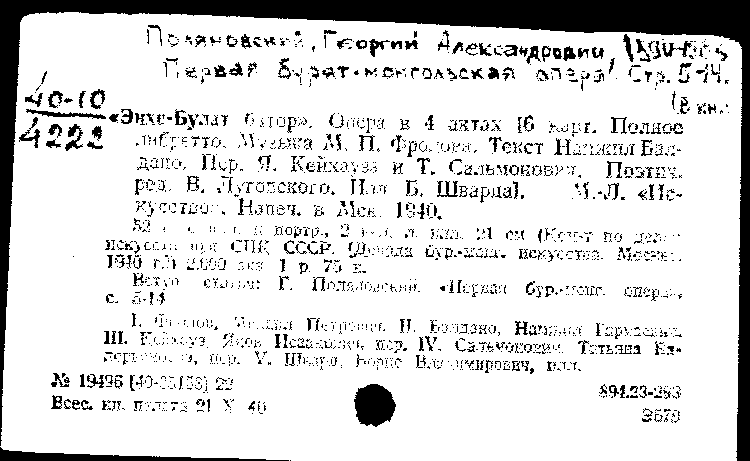 Поляновский, Георгий Александрович,
Первая бурят-монгольская опера. Стр. 5-14.
40-10
4222
(В кн.:
«Энхе-Булат батор». Опера в 4 актах [6 карт. Полное
либретто. Музыка М. П. Фролова. Текст Намжил Бал-
дано. Пер. Я. Кейхауза и Т. Сальмонович. Поэтич.
ред. В. Луговского. Илл. Б. Шварца]. М.-Л. «Ис-
кусство». Напеч. в Мск. 1940.
52 с. портр., 2 21 см (Ком-т по делам
искусств при СНК СССР. (Декада бур.-монг. искусства. Москва.
1940 г.) 2.000 экз. 1 р. 75 к.
Вступ. статья: Г. Поляновский. «Первая бур.-монг. опера»,
с. 5-14
I. Фролов, Михаил Петрович. II. Балдано, Намжил
III. Кейхауз, Яков Исаакович, пер. IV. Сальмонович, Татьяна Ва-
пер. V. Шварц, Борис Владимирович, илл.
№ 19496 22
Всес. кн. палата 21 X 40
894.23-293
Э679